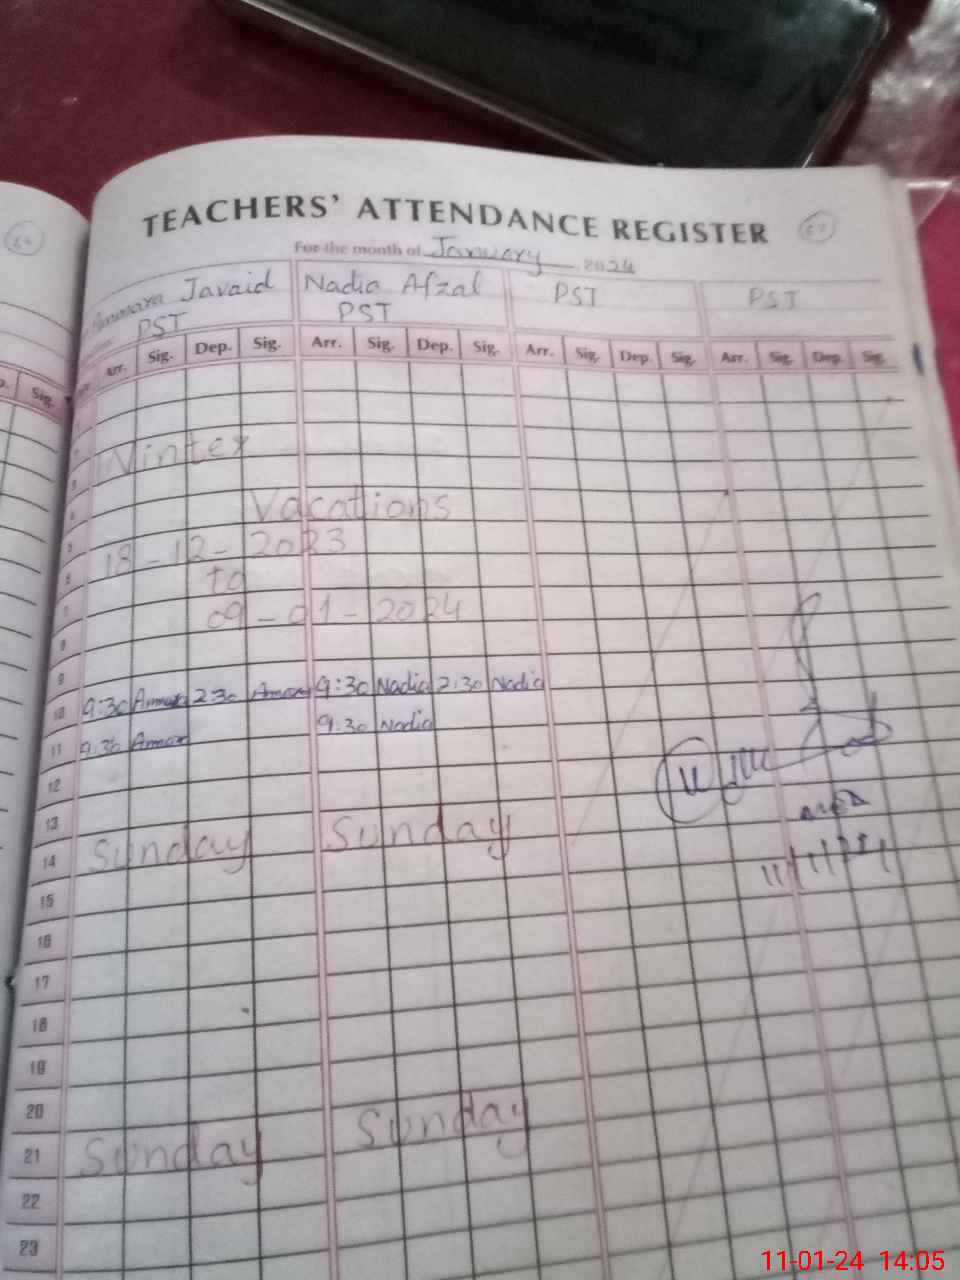 TEACHERS' ATTENDANCE REGISTER 67
For the month of January, 2024
Javaid Nadia Afzal PST PST
PST PST
Arr. Sig. Dep. Sig. Arr. Sig. Dep. Sig. Arr. Sig. Dep. Sig. Arr. Sig. Dep. Sig.
Sig.
Winter
3
4 Vacations
5 18-12-2023
6 to
7 09-01-2024
8
9
10 9:30 2:30 9:30 Nadia 2:30 Nadia
11 9:30 9.30 Nadia
12
13
14 Sunday Sunday
15
16
17
18
19
20
21 Sunday Sunday
22
23
11-01-24 14:05